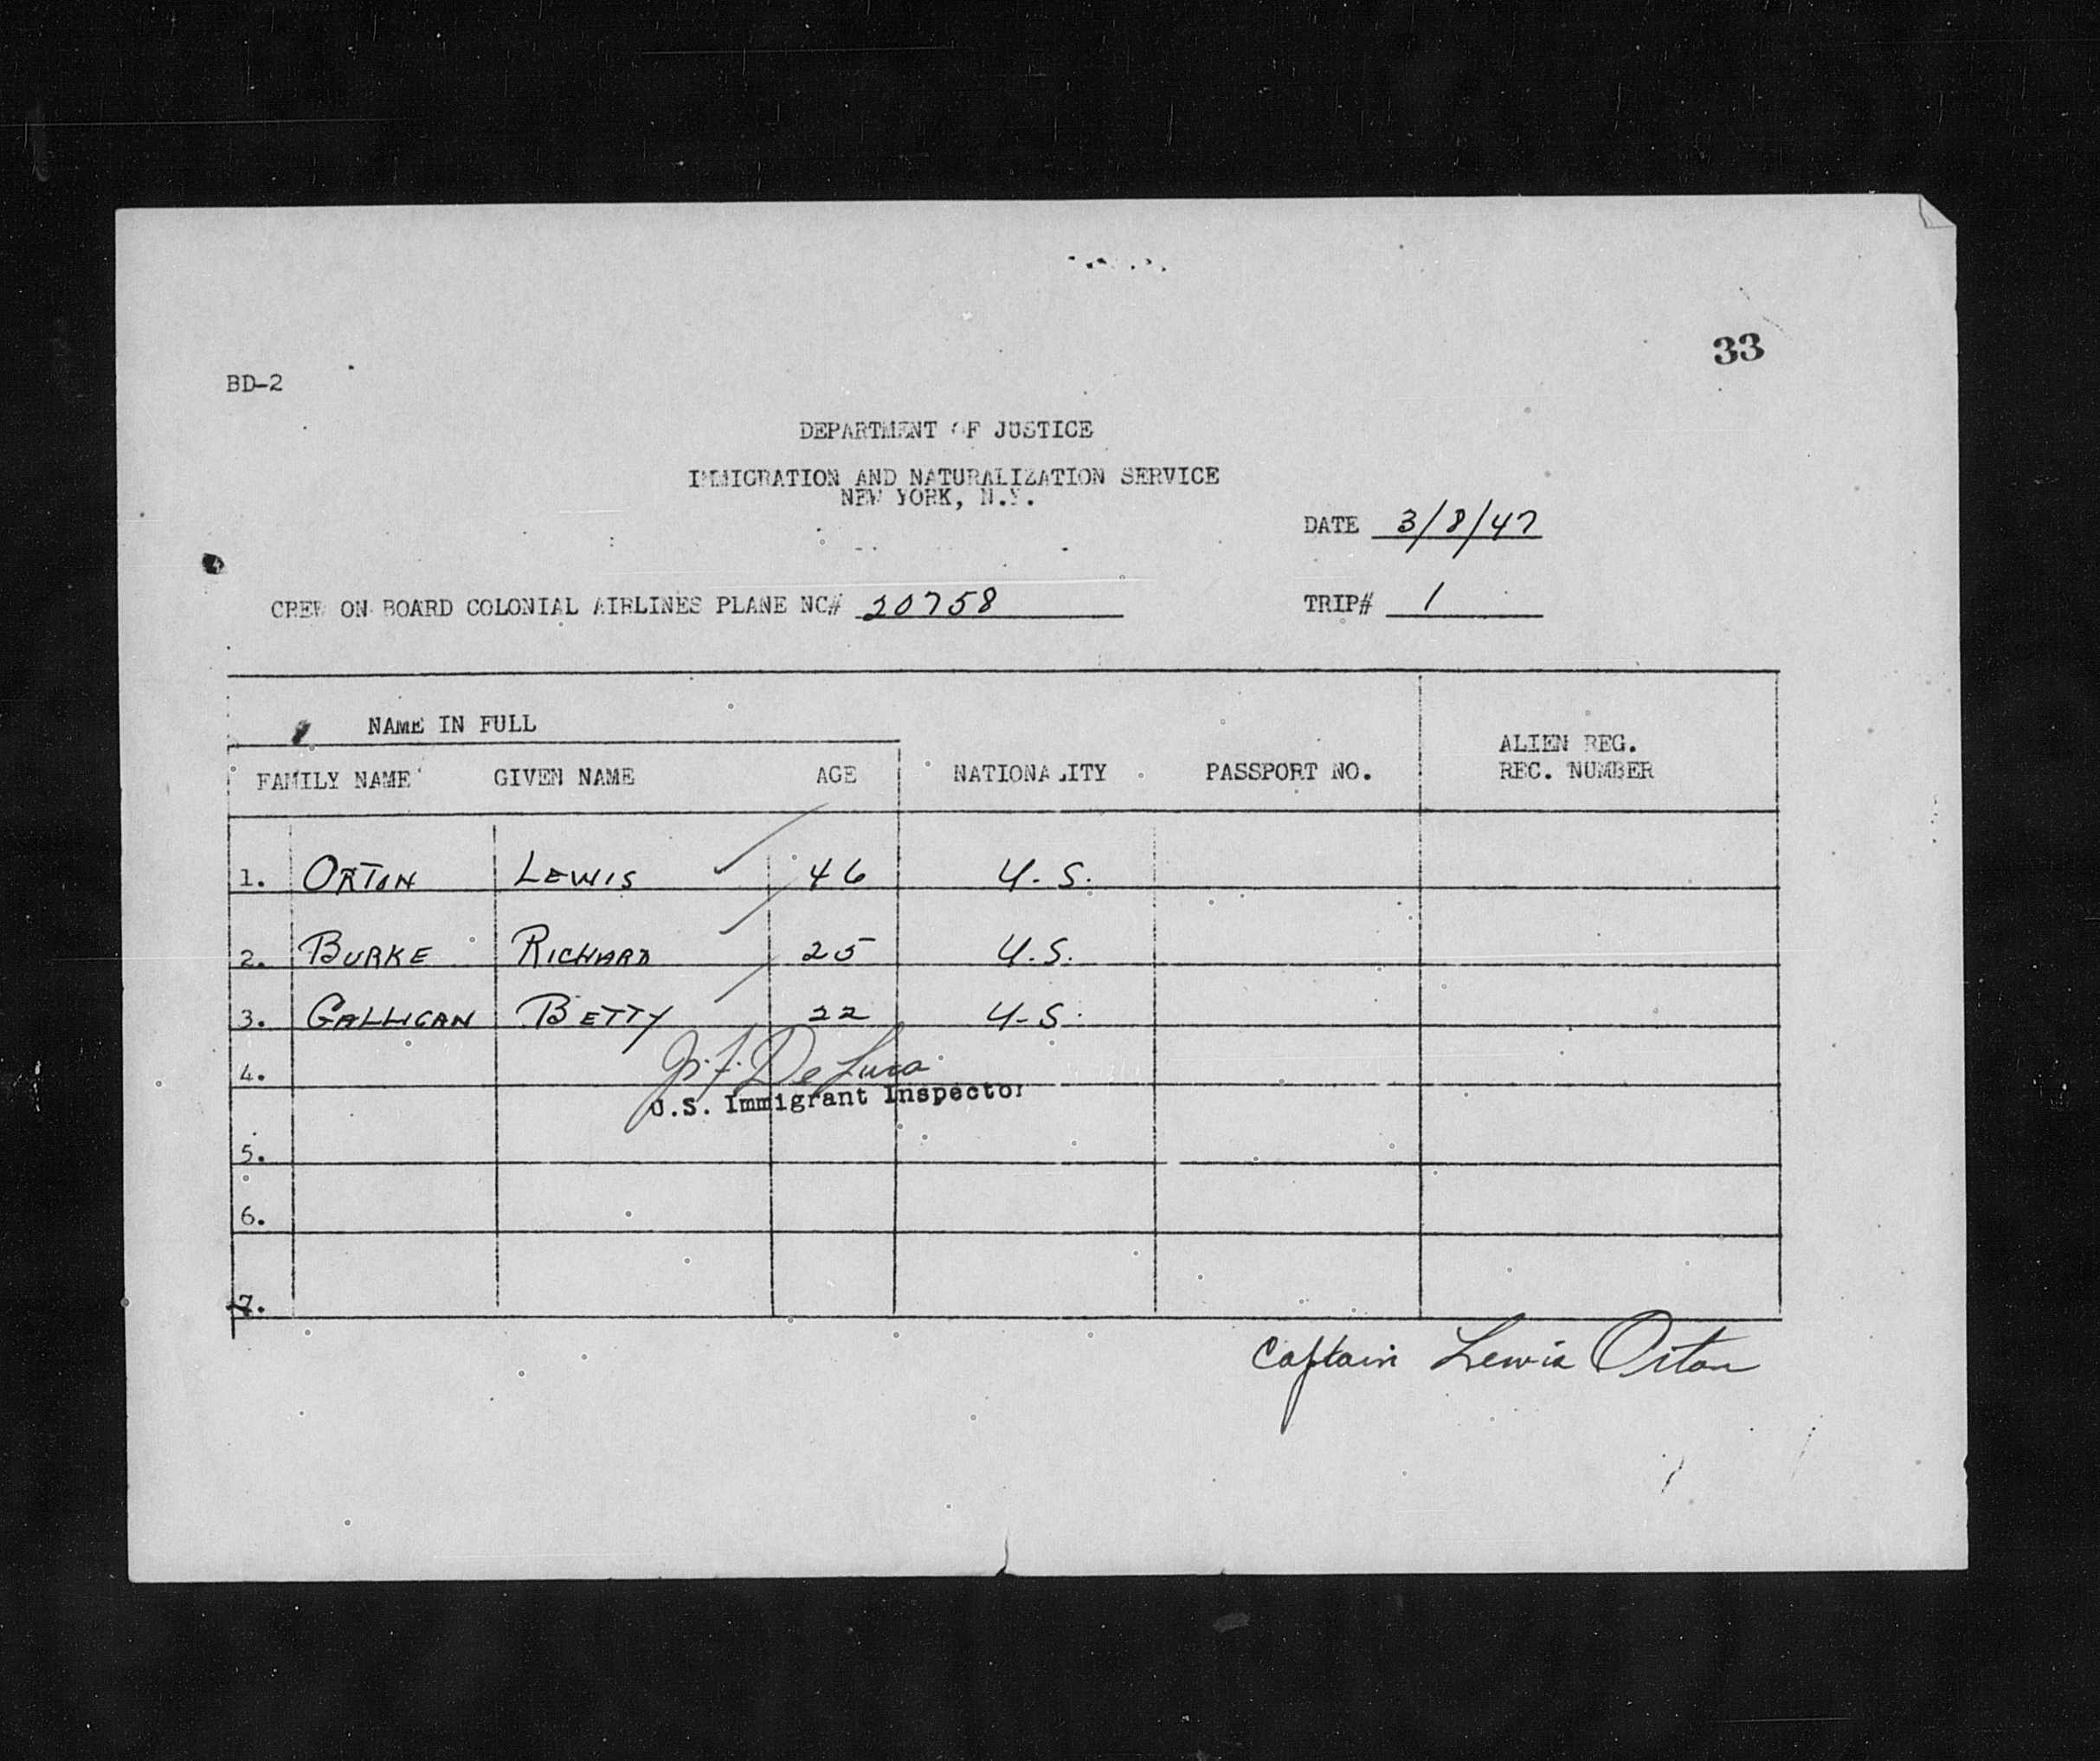 33
BD-2
DEPARTMENT OF JUSTICE
IMMIGRATION AND NATURALIZATION SERVICE
NEW YORK, N.Y.
DATE 3/8/47
CREW ON BOARD COLONIAL AIRLINES PLANE NC# 20758 TRIP# 1
NAME IN FULL
FAMILY NAME GIVEN NAME AGE NATIONALITY PASSPORT NO. ALIEN REG. REC. NUMBER
1. ORTON LEWIS 46 U.S.
2. BURKE RICHARD 25 U.S.
3. GALLIGAN BETTY 22 U.S.
4. J. F. De Luca
U.S. Immigrant Inspector
5.
6.
7.
Captain Lewis Orton